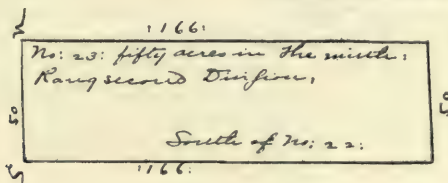 N
:166:
No: 23: fifty acres in the ninth:
Rang second Division,
50
50
South of No: 22:
S
:166: